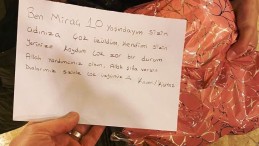 Ben Miraç 10 yaşındayım sizin
adınıza çok üzüldüm kendimi sizin
yerinize koydum çok zor bir durum
Allah yardımcınız olsun. Allah sıfa versin
Dualarımız sizinle çok